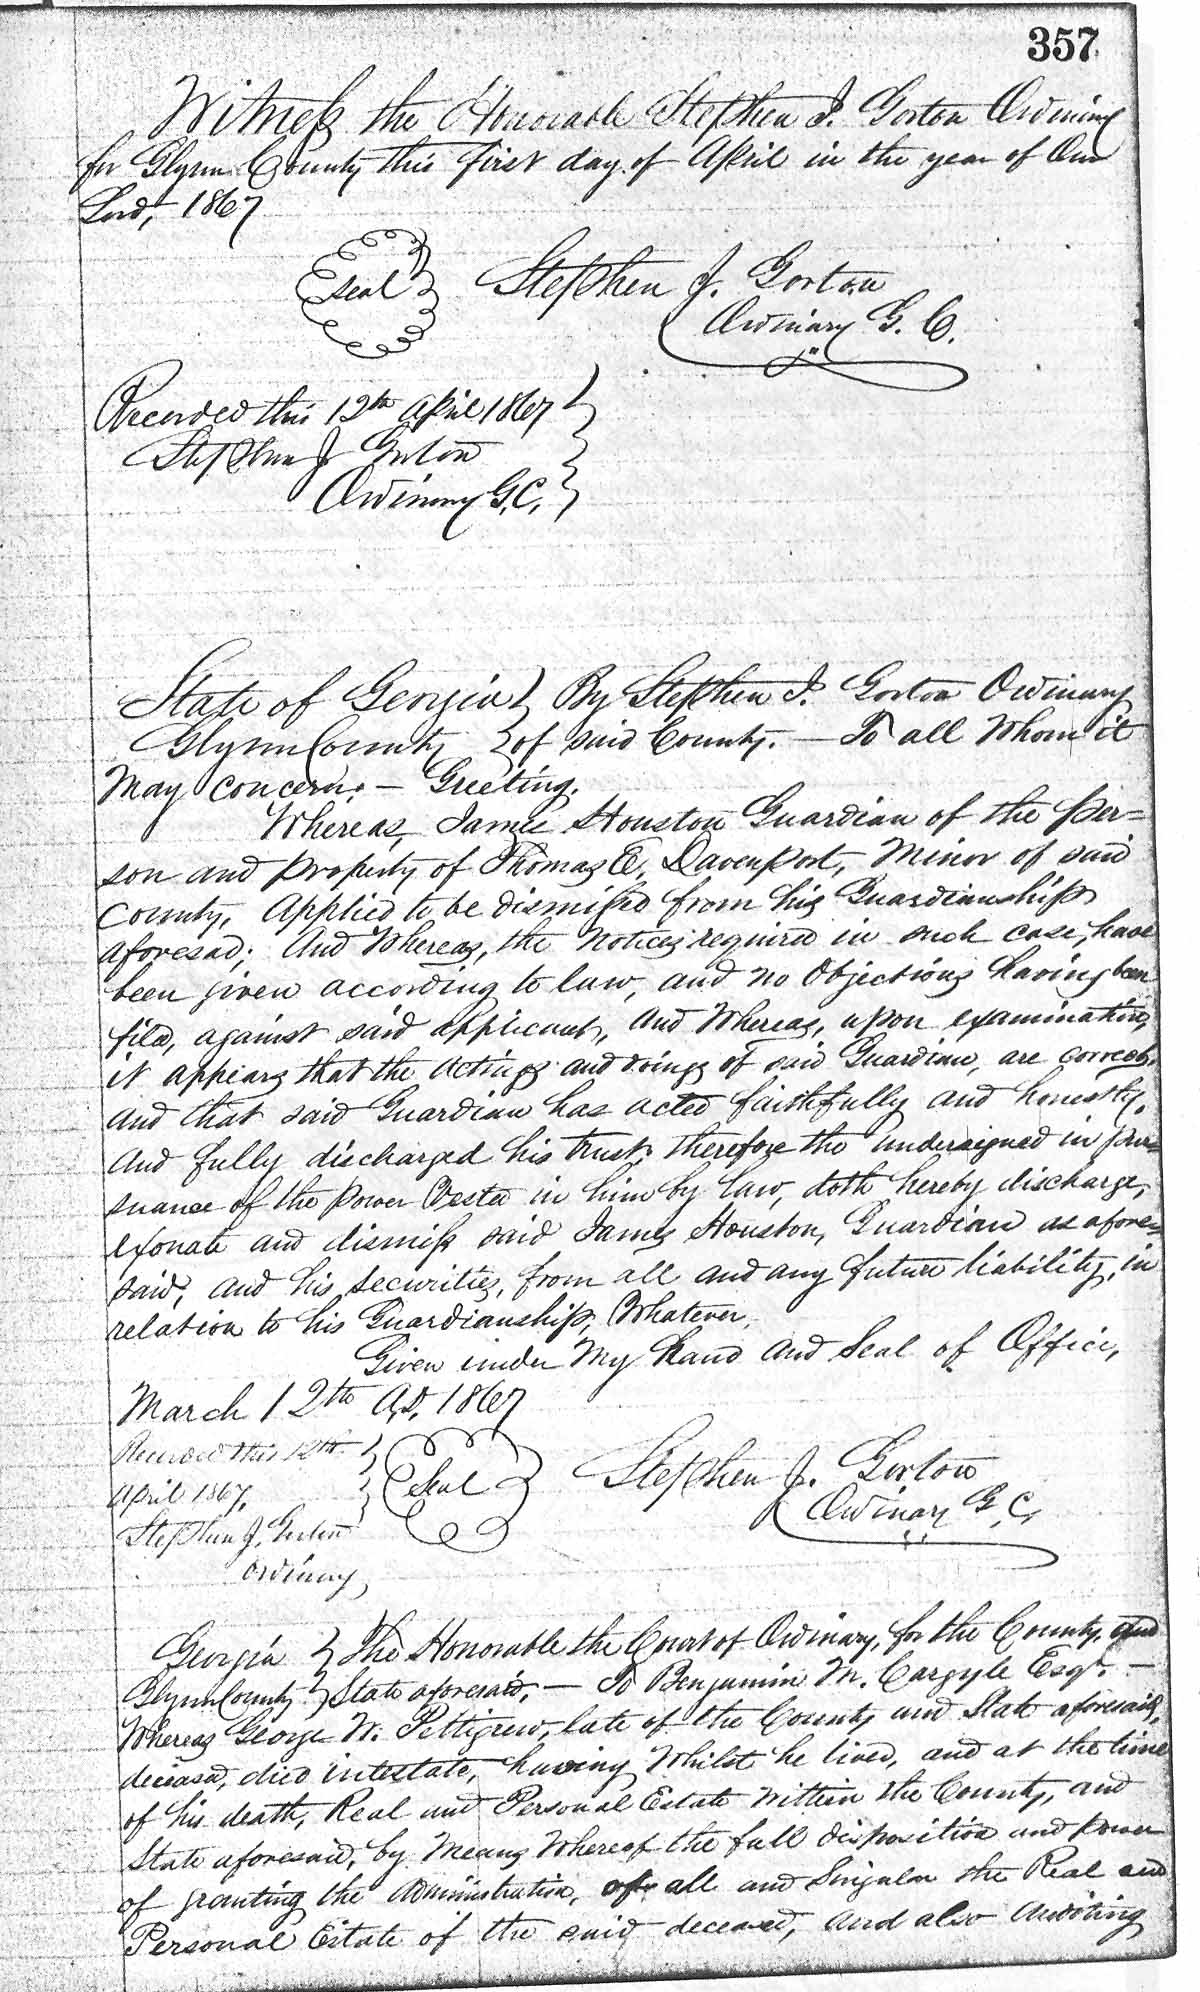 357
Witness the Honorable Stephen J. Gorton Ordinary
for Glynn County this first day of April in the year of Our
Lord, 1867
Seal
Stephen J. Gorton
Ordinary G. C.
Recorded this 12th April 1867
Stephen J Gorton
Ordinary G,C,
State of Georgia } By Stephen J. Gorton Ordinary
Glynn County } of said County. — To all Whom it
May concern. — Greeting.
Whereas, James Houston Guardian of the per=
son and property of Thomas E, Davenport, Minor of said
County, Applied to be dismissed from his Guardianship
aforesad; And Whereas, the notices required in such case, have
been given according to law, and no Objections having been
filed, against said applicant, And Whereas, upon examination,
it appears that the actings and doings of said Guardian, are correct,
and that said Guardian has acted faithfully and honestly,
And fully discharged his trust, therefore the undersigned in pur=
suance of the power Vested in him by law, doth hereby discharge,
exonate and dismiss said James Houston, Guardian as afore=
said, and his securities, from all and any future liability, in
relation to his Guardianship, Whatever,
Given under My hand and Seal of Office,
March 12th A,D, 1867
Recorded this 12th
April 1867.
Stephen J, Gorton
Ordinary,
Seal
Stephen J. Gorton
Ordinary G, C,
Georgia } The Honorable the Court of Ordinary, for the County, and
Glynn County } State aforesaid, — To Benjamin M. Cargyle Esqr. —
Whereas George W. Pettigrew, late of the County and State aforesaid,
deceased, died intestate, having Whilst he lived, and at the time
of his death, Real and Personal Estate within the County, and
State aforesaid, by Means Whereof the full disposition and power
of granting the Administration, of all and Singular the Real and
Personal Estate of the said deceased, and also Auditing